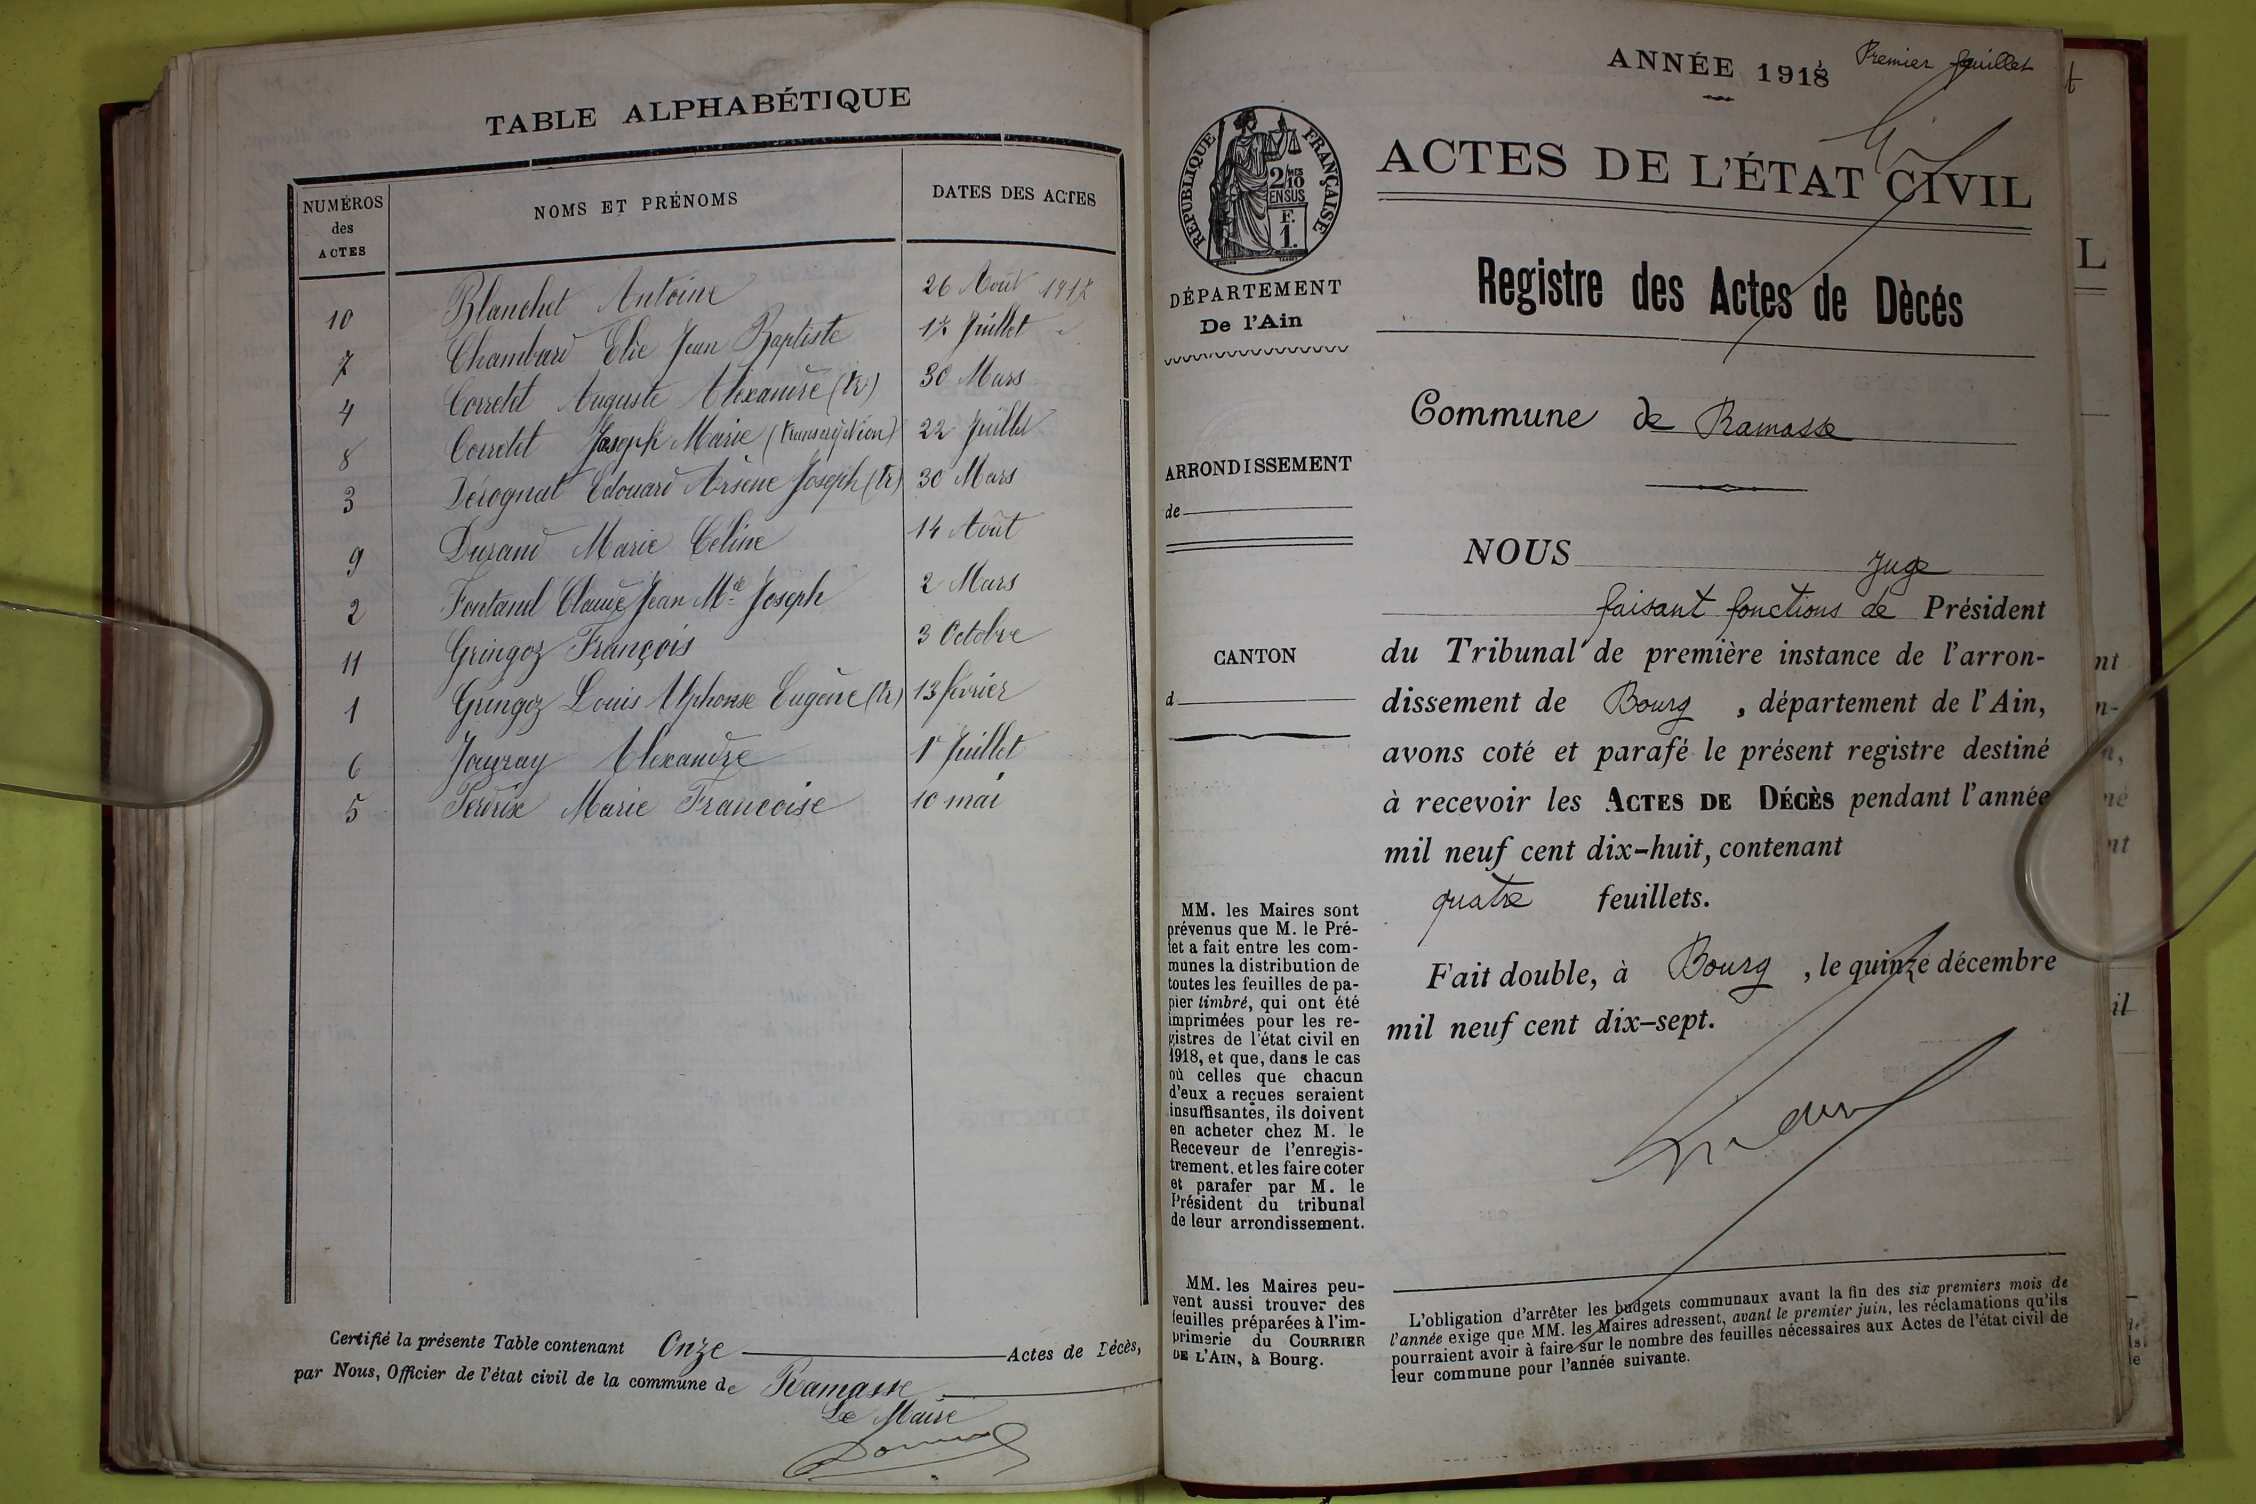 TABLE ALPHABÉTIQUE
NUMÉROS
des
ACTES
NOMS ET PRÉNOMS
DATES DES ACTES
10 Blanchet Antoine 26 Août 1917
7 Chambard Elie Jean Baptiste 17 Juillet
4 Corretel Auguste Alexandre (tr) 30 Mars
8 Corretel Joseph Marie (transcription) 22 Juillet
3 Dérognat Edouard Arsène Joseph (tr) 30 Mars
9 Durand Marie Céline 14 Août
2 Fontanel Claude Jean Mie Joseph 2 Mars
11 Gringoz François 3 Octobre
1 Gringoz Louis Alphonse Eugène (tr) 13 février
6 Alexandre 1r Juillet
5 Marie Francoise 10 mai
Certifié la présente Table contenant Onze Actes de Décès,
par Nous, Officier de l'état civil de la commune de Ramasse
Le Maire
Premier feuillet
ANNÉE 1918
ACTES DE L'ÉTAT CIVIL
RÉPUBLIQUE FRANÇAISE
2/MES
10
EN SUS
F.
1.
Registre des Actes de Dècés
DÉPARTEMENT
De l'Ain
Commune de Ramasse
ARRONDISSEMENT
de
CANTON
d
NOUS Juge
faisant fonctions de Président
du Tribunal de première instance de l'arron-
dissement de Bourg, département de l'Ain,
avons coté et parafé le présent registre destiné
à recevoir les ACTES DE DÉCÈS pendant l'année
mil neuf cent dix-huit, contenant
quatre feuillets.
Fait double, à Bourg, le quinze décembre
mil neuf cent dix-sept.
MM. les Maires sont
prévenus que M. le Pré-
fet a fait entre les com-
munes la distribution de
toutes les feuilles de pa-
pier timbré, qui ont été
imprimées pour les re-
gistres de l'état civil en
1918, et que, dans le cas
où celles que chacun
d'eux a reçues seraient
insuffisantes, ils doivent
en acheter chez M. le
Receveur de l'enregis-
trement, et les faire coter
et parafer par M. le
Président du tribunal
de leur arrondissement.
MM. les Maires peu-
vent aussi trouver des
feuilles préparées à l'im-
primerie du COURRIER
DE L'AIN, à Bourg.
L'obligation d'arrêter les budgets communaux avant la fin des six premiers mois de
l'année exige que MM. les Maires adressent, avant le premier juin, les réclamations qu'ils
pourraient avoir à faire sur le nombre des feuilles nécessaires aux Actes de l'état civil de
leur commune pour l'année suivante.